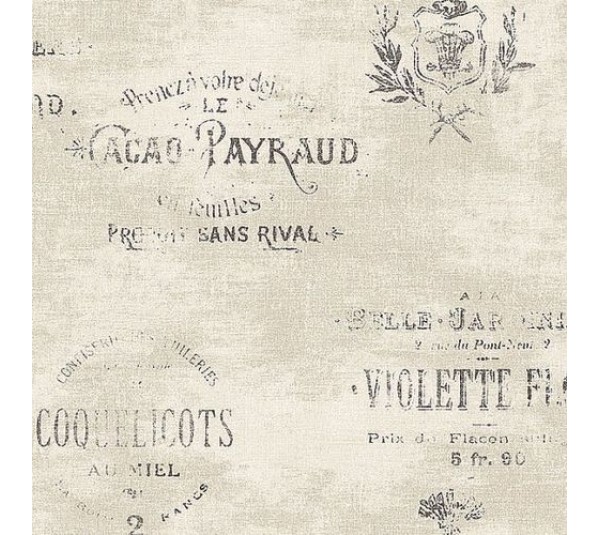 RD.
Prenez à votre
LE
CACAO PAYRAUD
en feuilles
PRODUIT SANS RIVAL
A LA
BELLE JARDINI
2 rue du Pont-Neuf 2
VIOLETTE FL
Prix du Flacon
5 fr. 90
CONFISERIE DES TUILERIES
COQUELICOTS
AU MIEL
2 FRANCS